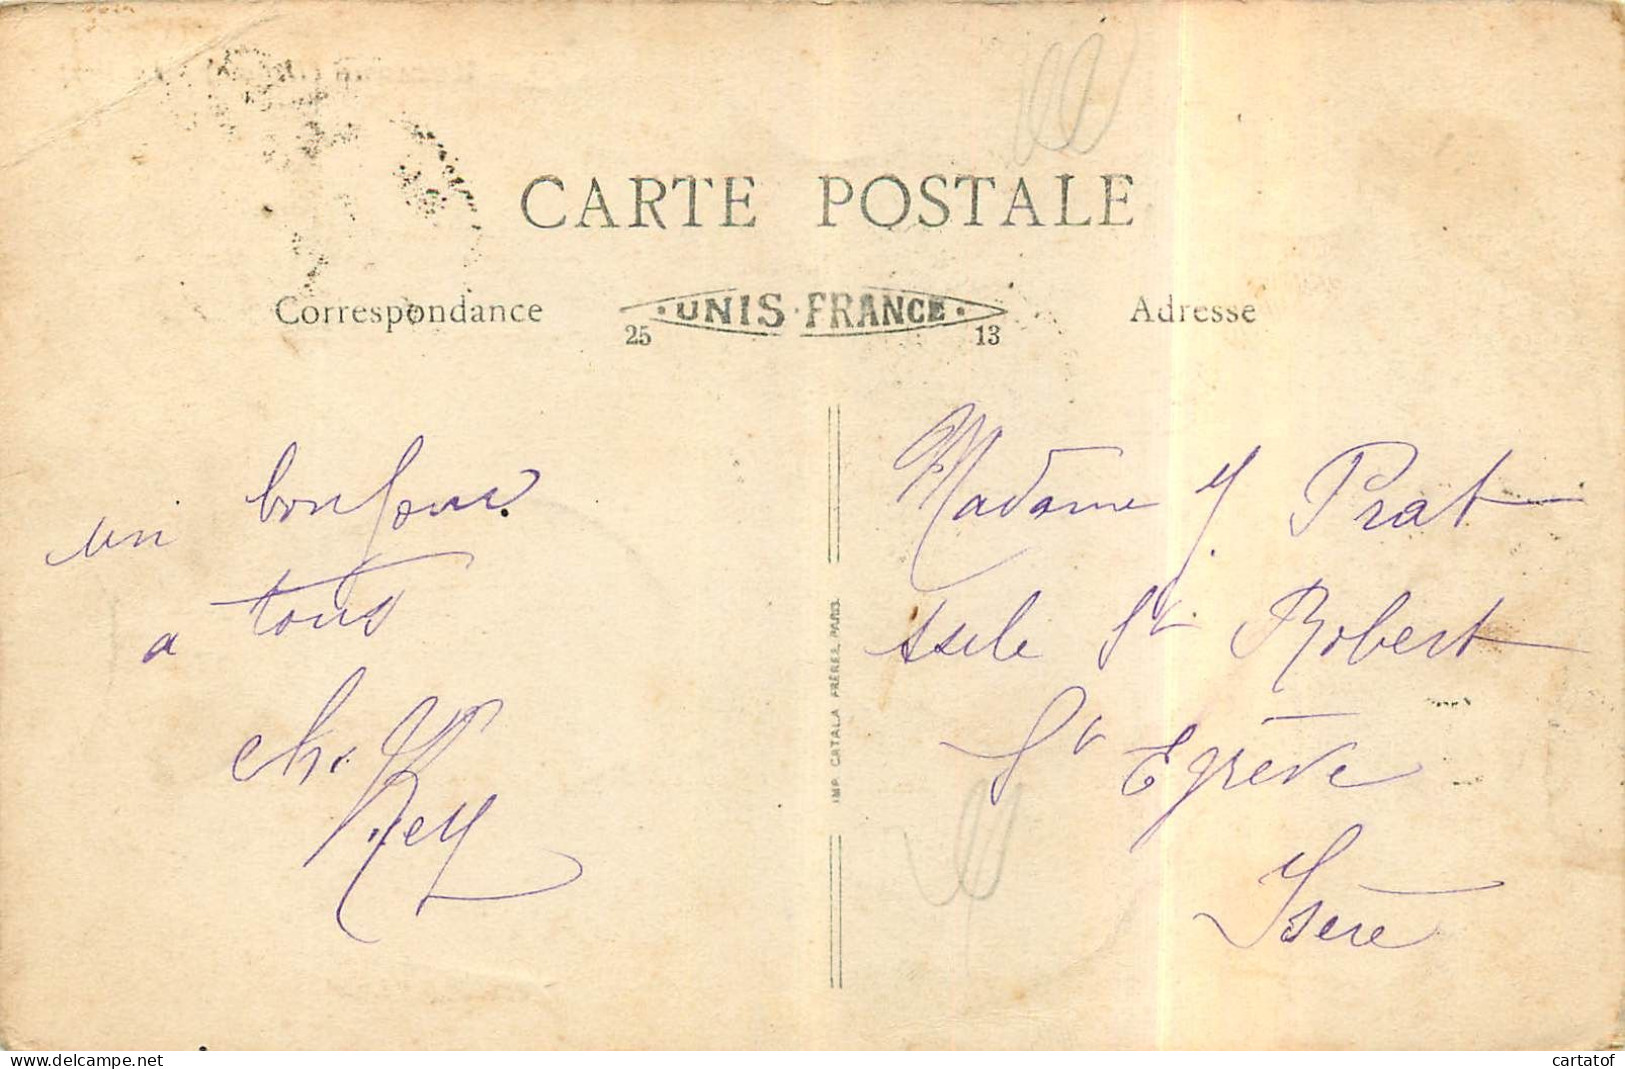 CARTE POSTALE
Correspondance
UNIS FRANCE
25 13
Adresse
un bonjour
a tous
ch. Rey
IMP. CATALA FRÈRES, PARIS.
Madame J. Prat
Asile St Robert
St Egrève
Isère
www.delcampe.net
cartatof